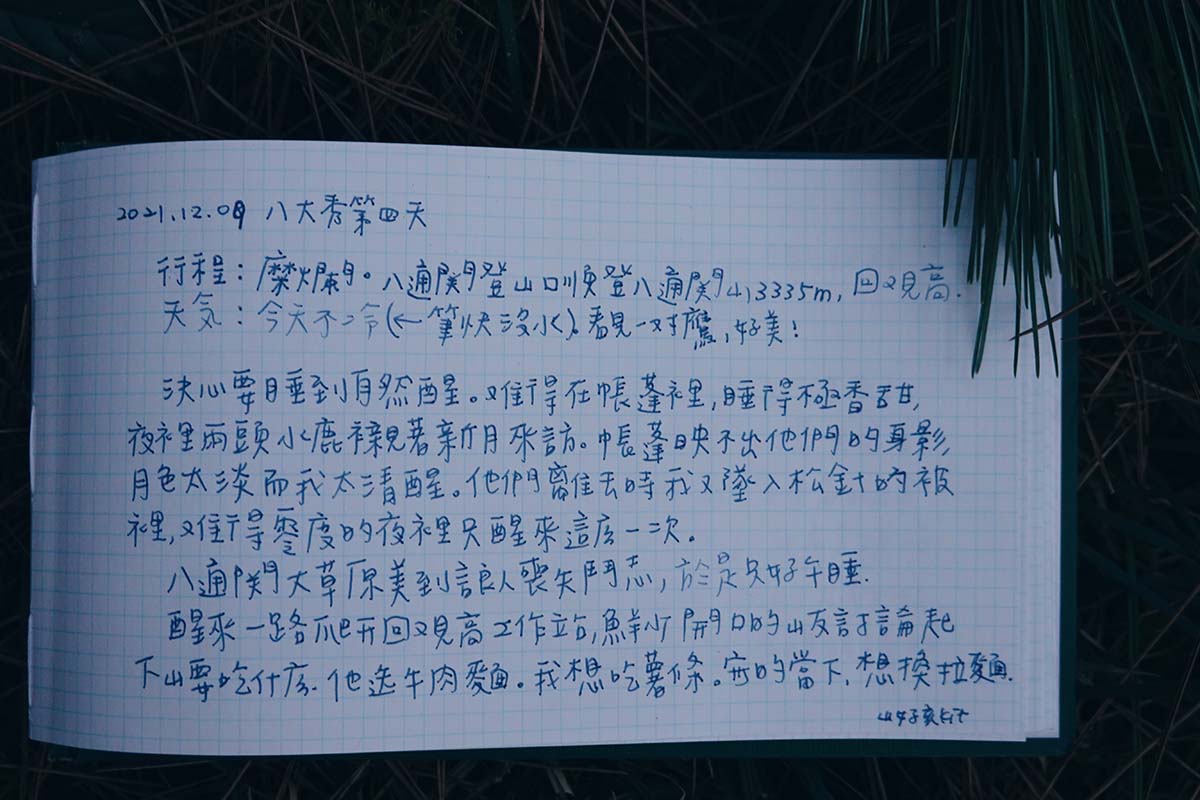 2021.12.09 八大秀第四天
行程：糜爛。八通關登山口順登八通關山3335m，回觀高.
天氣：今天不冷(←筆快沒水)。看見一對鷹，好美！
決心要睡到自然醒。難得在帳蓬裡，睡得極香甜，
夜裡兩頭水鹿襯著新月來訪。帳蓬映不出他們的身影，
月色太淡而我太清醒。他們離去時我又墜入松針的被
裡，難得零度的夜裡只醒來這麼一次。
八通關大草原美到讓人喪失鬥志，於是只好午睡.
醒來一路爬升回觀高工作站，鮮少開口的山友討論起
下山要吃什麼. 他选牛肉麵。我想吃薯條。的當下，想換拉麵.
山女孩Kit